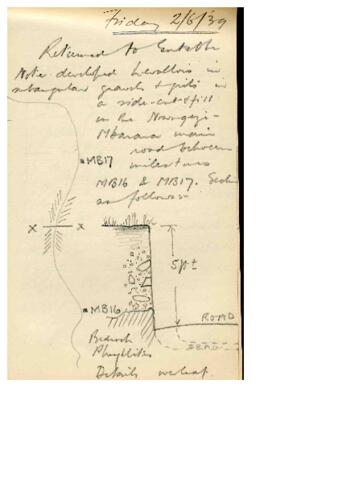 Friday 2/6/39
Returned to Entebbe
Note developed Levallois in
subangular gravels & grits in
a side-cut & fill
in the
Mbarara main
road between
milestones
MB17
MB16 & MB17. Section
as follows:-
X X
5ft ±
MB16
ROAD
Bedrock
Phyllites
Details overleaf.